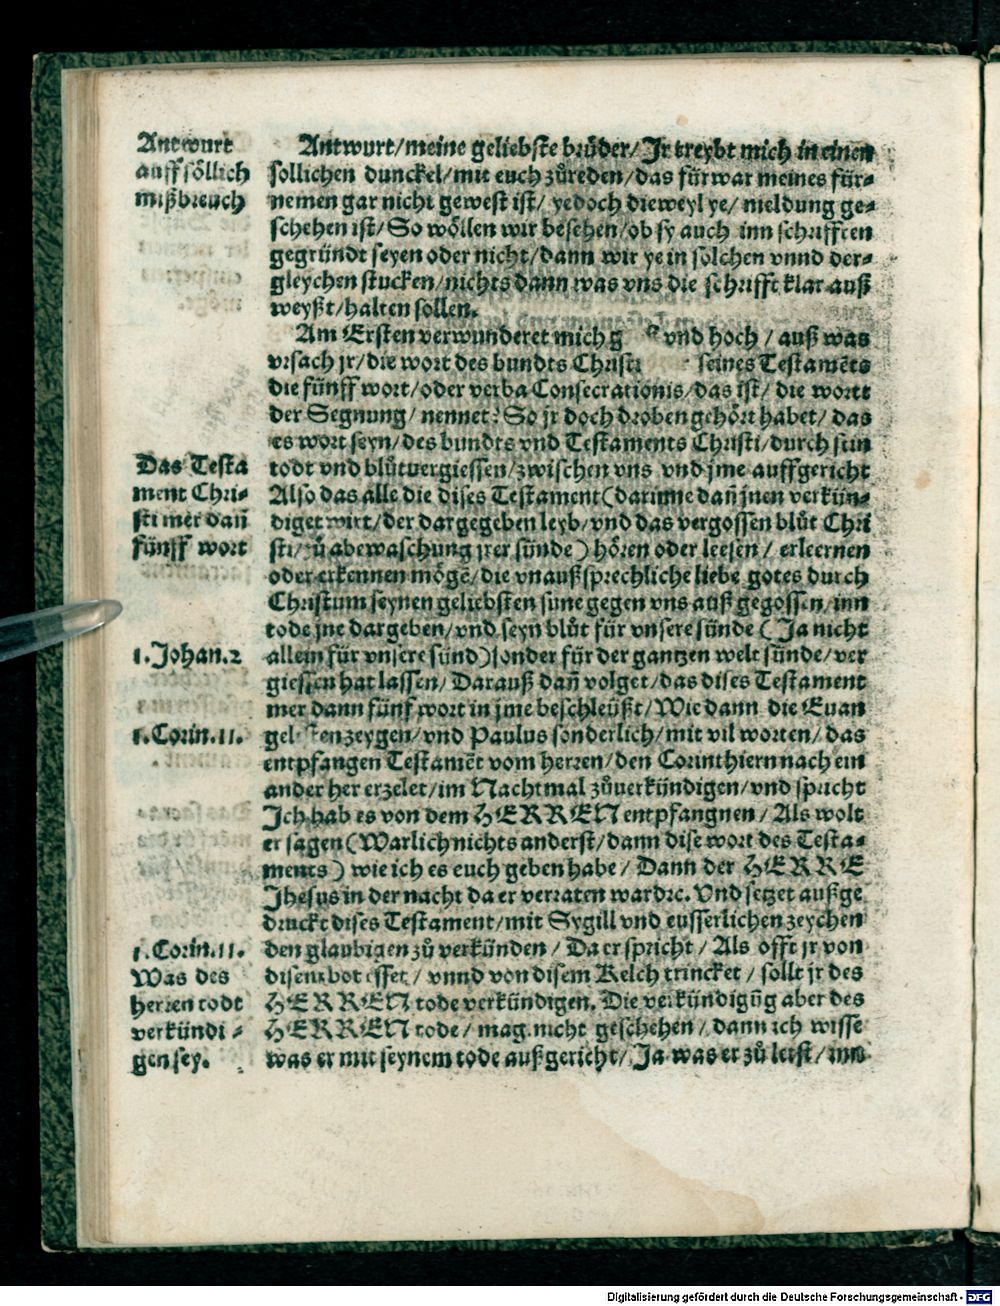 Antwurt
auff söllich
mißbreuch
Antwurt/meine geliebste brůder/Jr treybt mich in einen
sollichen dunckel/mit euch zůreden/das fürwar meines für-
nemen gar nicht gewest ist/ yedoch dieweyl ye/ meldung ge-
schehen ist/ So wöllen wir besehen/ob sy auch inn schrifften
gegründt seyen oder nicht/dann wir ye in solchen vnnd der-
gleychen stucken/nichts dann was vns die schrifft klar auß
weyßt/halten sollen.
Am Ersten verwunderet mich vnd hoch / auß was
vrsach jr/die wort des bundts Christi seines Testamēts
die fünff wort/oder verba Consecrationis/das ist/ die wortt
der Segnung/ nennet: So jr doch droben gehört habet/ das
es wort seyn/des bundts vnd Testaments Christi/durch sein
Das Testa
ment Chri-
sti mer dañ
fünff wort
todt vnd blůtvergiessen/zwischen vns vnd jme auffgericht
Also das alle die dises Testament(darinne dañ jnen verkün-
diget wirt/der dargegeben leyb/vnd das vergossen blůt Chri
sti/zů abewaschung jrer sünde) hören oder leesen / erleernen
oder erkennen mögē/die vnaußsprechliche liebe gotes durch
Christum seynen geliebsten sune gegen vns auß gegossen/inn
tode jne dargeben/vnd seyn blůt für vnsere sünde (Ja nicht
1. Johan.2
allein für vnsere sünd)sonder für der gantzen welt sünde/ver
giessen hat lassen/ Darauß dañ volget/das dises Testament
mer dann fünf wort in jme beschleüßt/Wie dann die Euan
1. Corin.11.
gelisten zeygen/vnd Paulus sonderlich/mit vil worten/das
entpfangen Testamēt vom herren/den Corinthiern nach ein
ander her erzelet/im Nachtmal zůuerkündigen/vnd spricht
Jch hab es von dem HERREN entpfangnen / Als wolt
er sagen (Warlich nichts anderst/dann dise wort des Testa-
ments) wie ich es euch geben habe / Dann der HERRE
Jhesus in der nacht da er verraten ward ꝛc. Vnd setzet außge
druckt dises Testament/mit Sygill vnd eusserlichen zeychen
1. Corin.11.
Was des
herren todt
verkündi-
gen sey.
den glaubigen zů verkünden / Da er spricht / Als offt jr von
disem bot esset / vnnd von disem Kelch trincket / sollt jr des
HERREN tode verkündigen. Die verkündigūg aber des
HERREN tode / mag nicht geschehen / dann ich wisse
was er mit seynem tode außgericht/ Ja was er zů letst/ inn
Digitalisierung gefördert durch die Deutsche Forschungsgemeinschaft - DFG